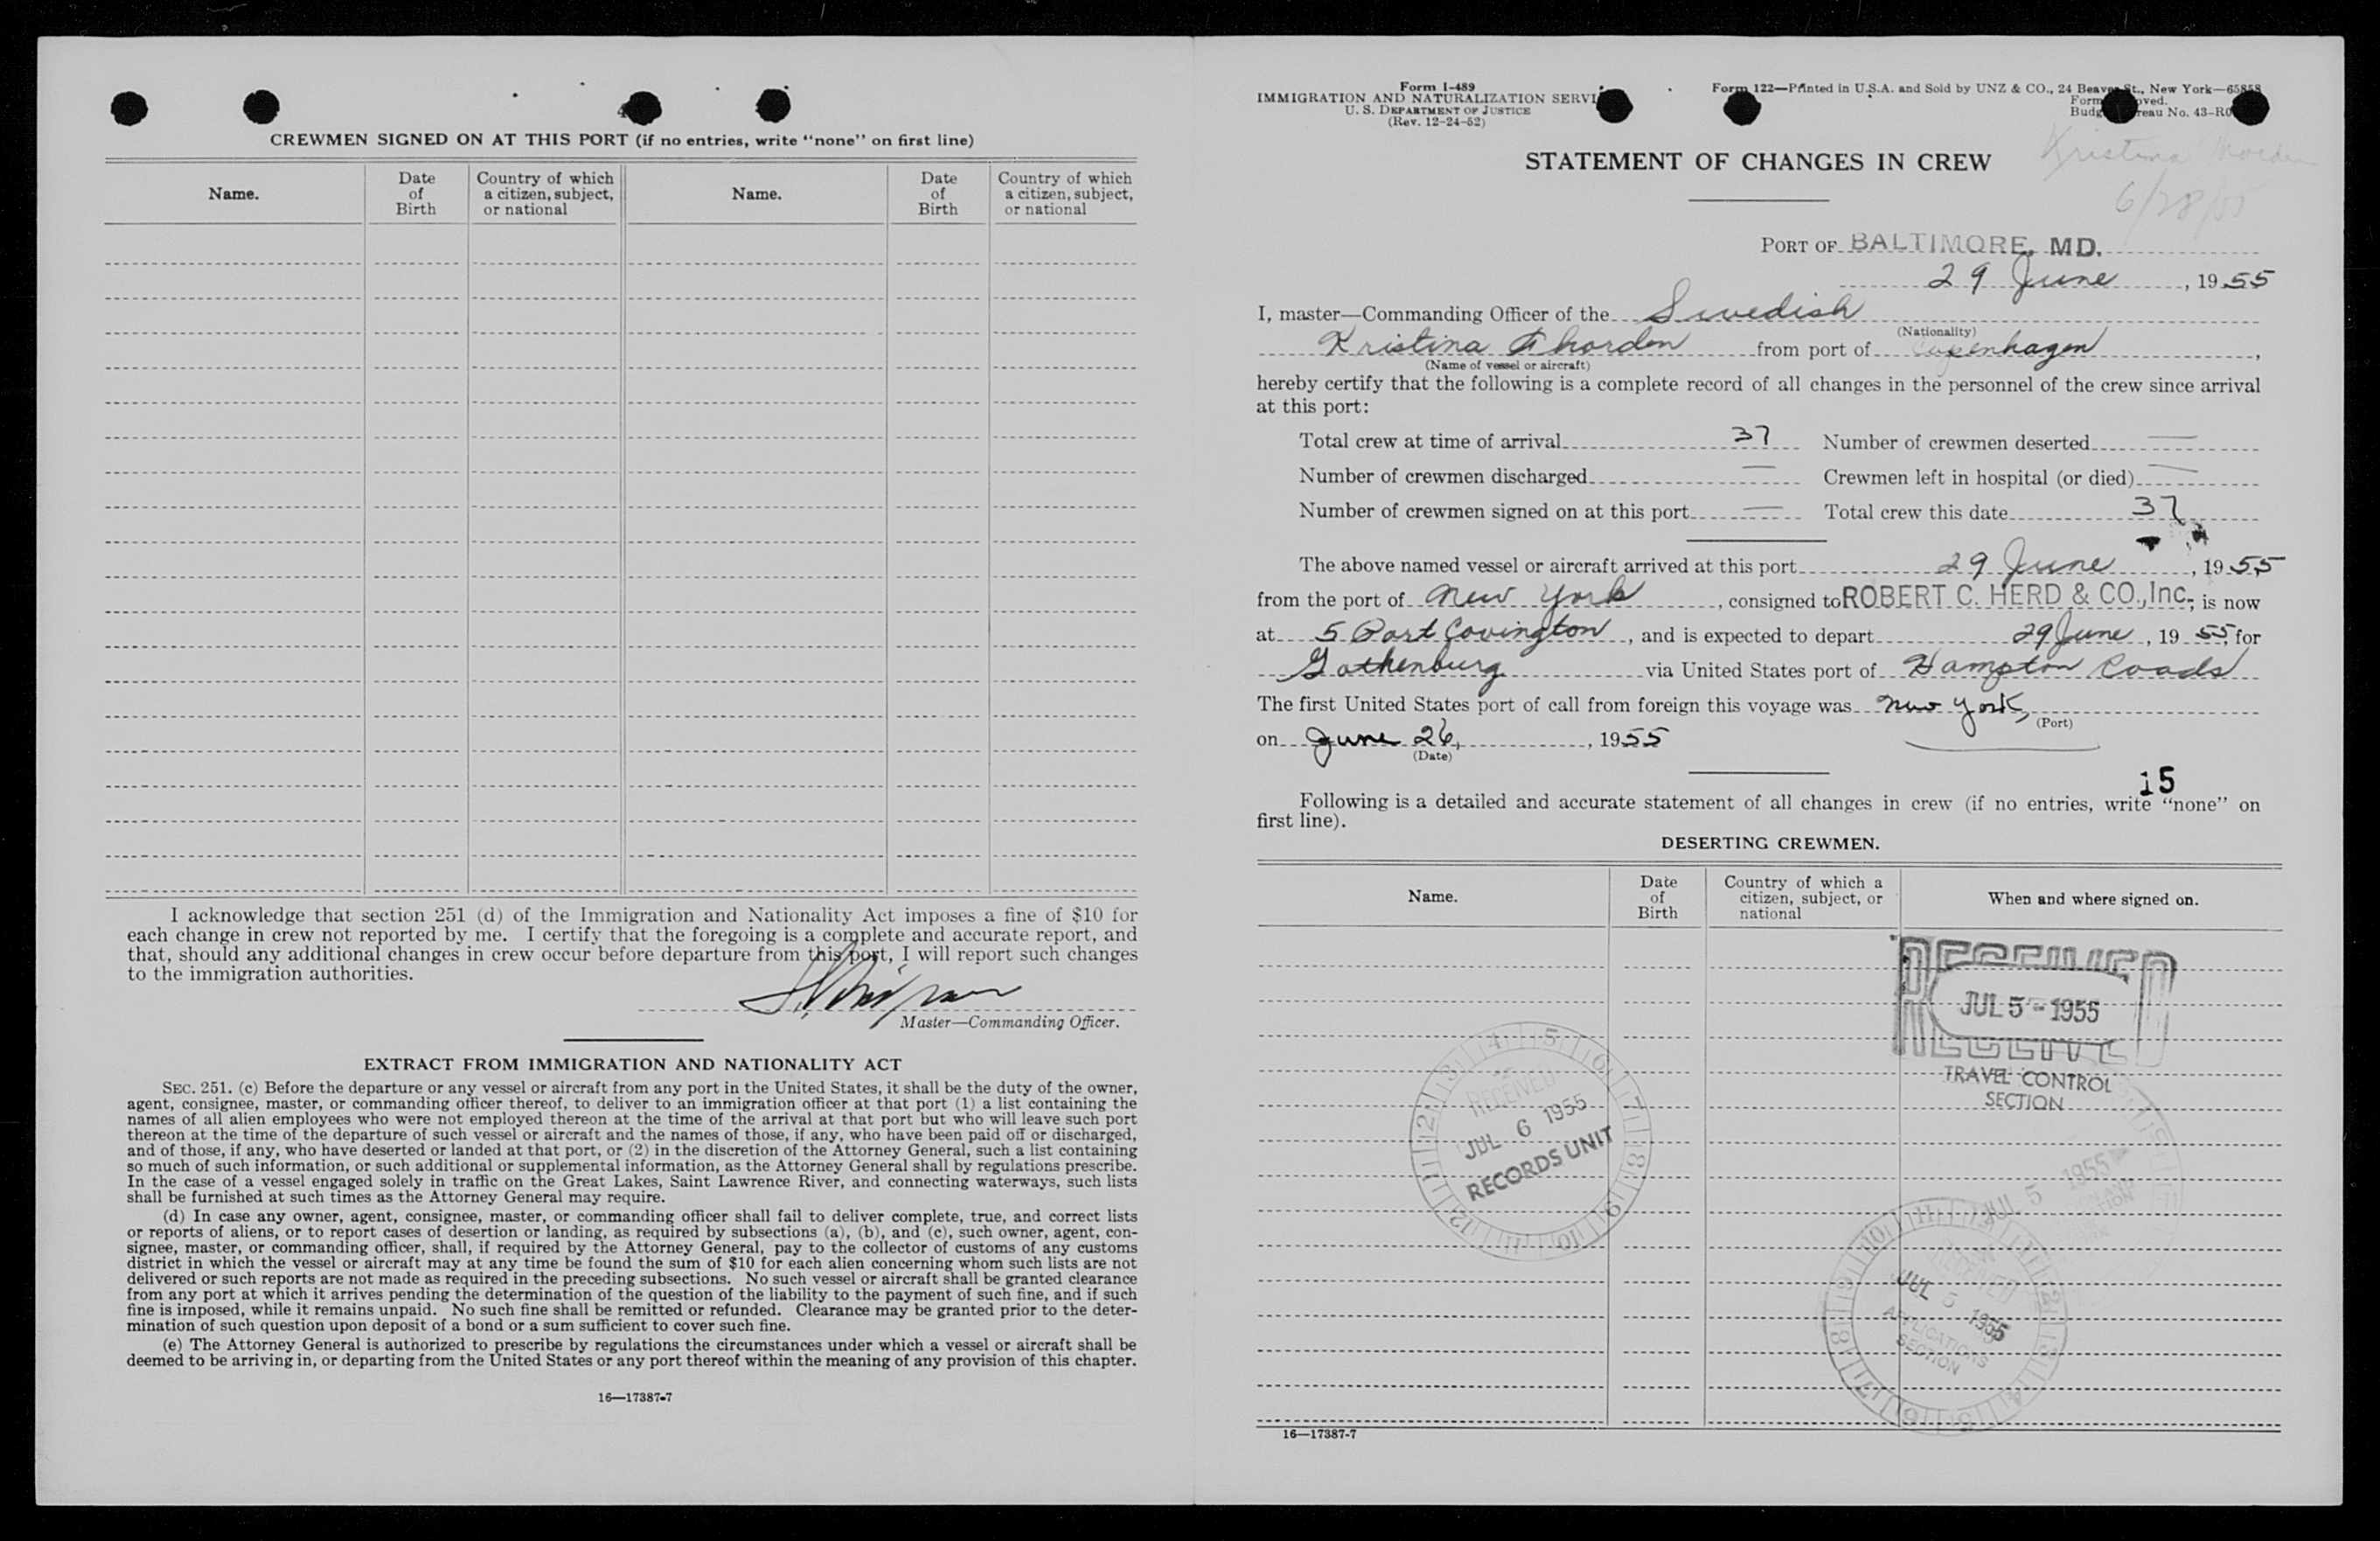 CREWMEN SIGNED ON AT THIS PORT (if no entries, write "none" on first line)
Name.
Date of Birth
Country of which a citizen, subject, or national
Name.
Date of Birth
Country of which a citizen, subject, or national
I acknowledge that section 251 (d) of the Immigration and Nationality Act imposes a fine of $10 for
each change in crew not reported by me. I certify that the foregoing is a complete and accurate report, and
that, should any additional changes in crew occur before departure from this port, I will report such changes
to the immigration authorities.
Master—Commanding Officer.
EXTRACT FROM IMMIGRATION AND NATIONALITY ACT
SEC. 251. (c) Before the departure or any vessel or aircraft from any port in the United States, it shall be the duty of the owner,
agent, consignee, master, or commanding officer thereof, to deliver to an immigration officer at that port (1) a list containing the
names of all alien employees who were not employed thereon at the time of the arrival at that port but who will leave such port
thereon at the time of the departure of such vessel or aircraft and the names of those, if any, who have been paid off or discharged,
and of those, if any, who have deserted or landed at that port, or (2) in the discretion of the Attorney General, such a list containing
so much of such information, or such additional or supplemental information, as the Attorney General shall by regulations prescribe.
In the case of a vessel engaged solely in traffic on the Great Lakes, Saint Lawrence River, and connecting waterways, such lists
shall be furnished at such times as the Attorney General may require.
(d) In case any owner, agent, consignee, master, or commanding officer shall fail to deliver complete, true, and correct lists
or reports of aliens, or to report cases of desertion or landing, as required by subsections (a), (b), and (c), such owner, agent, con-
signee, master, or commanding officer, shall, if required by the Attorney General, pay to the collector of customs of any customs
district in which the vessel or aircraft may at any time be found the sum of $10 for each alien concerning whom such lists are not
delivered or such reports are not made as required in the preceding subsections. No such vessel or aircraft shall be granted clearance
from any port at which it arrives pending the determination of the question of the liability to the payment of such fine, and if such
fine is imposed, while it remains unpaid. No such fine shall be remitted or refunded. Clearance may be granted prior to the deter-
mination of such question upon deposit of a bond or a sum sufficient to cover such fine.
(e) The Attorney General is authorized to prescribe by regulations the circumstances under which a vessel or aircraft shall be
deemed to be arriving in, or departing from the United States or any port thereof within the meaning of any provision of this chapter.
16—17387-7
Form I-489
IMMIGRATION AND NATURALIZATION SERVI
U. S. DEPARTMENT OF JUSTICE
(Rev. 12-24-52)
Form 122—Printed in U.S.A. and Sold by UNZ & CO., 24 Beaver St., New York—65858
Form oved.
Budg reau No. 43-R0
STATEMENT OF CHANGES IN CREW
Kristina
6/28/55
PORT OF BALTIMORE, MD.
29 June, 1955
I, master—Commanding Officer of the Swedish
(Nationality)
Kristina Thorden from port of Copenhagen,
(Name of vessel or aircraft)
hereby certify that the following is a complete record of all changes in the personnel of the crew since arrival
at this port:
Total crew at time of arrival 37 Number of crewmen deserted —
Number of crewmen discharged — Crewmen left in hospital (or died) —
Number of crewmen signed on at this port — Total crew this date 37
The above named vessel or aircraft arrived at this port 29 June, 1955
from the port of New York, consigned to ROBERT C. HERD & CO., Inc., is now
at 5 Port Covington, and is expected to depart 29 June, 1955, for
Gothenburg via United States port of Hampton Roads
The first United States port of call from foreign this voyage was New York,
(Port)
on June 26, 1955
(Date)
15
Following is a detailed and accurate statement of all changes in crew (if no entries, write "none" on
first line).
DESERTING CREWMEN.
Name.
Date of Birth
Country of which a citizen, subject, or national
When and where signed on.
RECEIVED
JUL 5 - 1955
RECEIVED
TRAVEL CONTROL
SECTION
RECEIVED
JUL 6 1955
RECORDS UNIT
JUL 5 1955
JUL 5 1955
APPLICATIONS
SECTION
16—17387-7